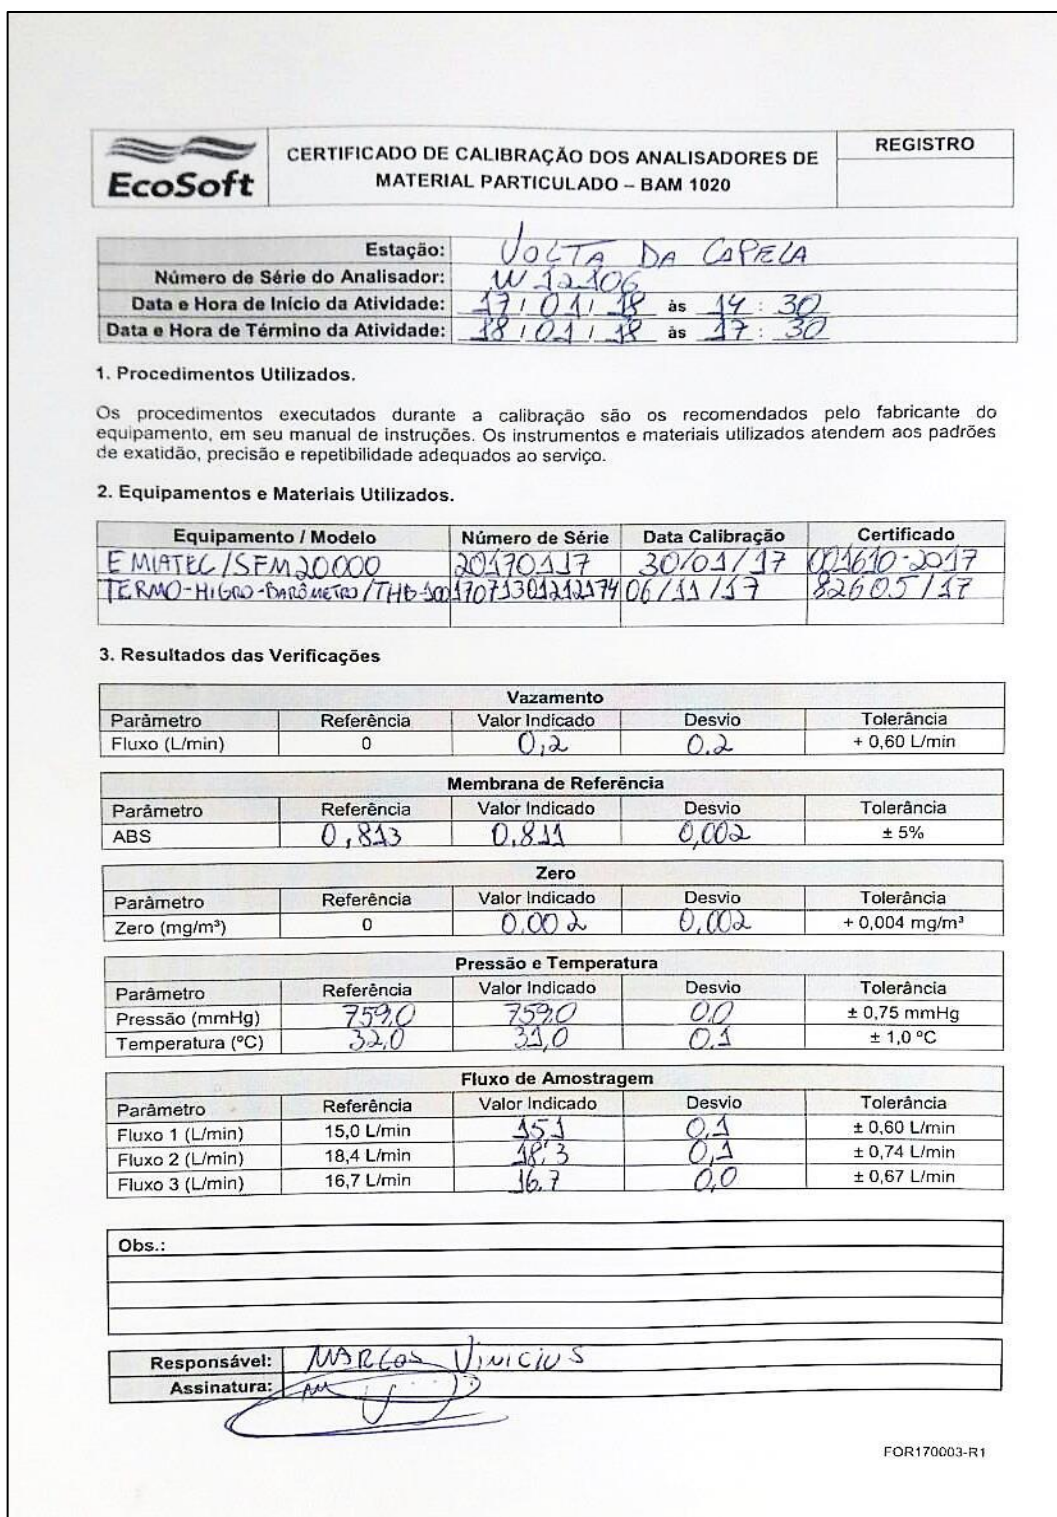 EcoSoft
CERTIFICADO DE CALIBRAÇÃO DOS ANALISADORES DE
MATERIAL PARTICULADO – BAM 1020
REGISTRO
Estação: VOLTA DA CAPELA
Número de Série do Analisador: W 12106
Data e Hora de Início da Atividade: 17 / 01 / 18 às 14 : 30
Data e Hora de Término da Atividade: 18 / 01 / 18 às 17 : 30
1. Procedimentos Utilizados.
Os procedimentos executados durante a calibração são os recomendados pelo fabricante do
equipamento, em seu manual de instruções. Os instrumentos e materiais utilizados atendem aos padrões
de exatidão, precisão e repetibilidade adequados ao serviço.
2. Equipamentos e Materiais Utilizados.
Equipamento / Modelo Número de Série Data Calibração Certificado
EMIATEC/SFM20000 20170117 30/01/17 001610-2017
TERMO-HIGRO-BARÔMETRO/THB-100 17071301212174 06/11/17 82605/17
3. Resultados das Verificações
Vazamento
Parâmetro Referência Valor Indicado Desvio Tolerância
Fluxo (L/min) 0 0,2 0.2 + 0,60 L/min
Membrana de Referência
Parâmetro Referência Valor Indicado Desvio Tolerância
ABS 0,813 0.811 0,002 ± 5%
Zero
Parâmetro Referência Valor Indicado Desvio Tolerância
Zero (mg/m³) 0 0.002 0,002 + 0,004 mg/m³
Pressão e Temperatura
Parâmetro Referência Valor Indicado Desvio Tolerância
Pressão (mmHg) 759,0 759,0 0,0 ± 0,75 mmHg
Temperatura (ºC) 32,0 31,0 0.1 ± 1,0 ºC
Fluxo de Amostragem
Parâmetro Referência Valor Indicado Desvio Tolerância
Fluxo 1 (L/min) 15,0 L/min 15.1 0,1 ± 0,60 L/min
Fluxo 2 (L/min) 18,4 L/min 18,3 0,1 ± 0,74 L/min
Fluxo 3 (L/min) 16,7 L/min 16.7 0,0 ± 0,67 L/min
Obs.:
Responsável: MARCOS VINICIUS
Assinatura:
FOR170003-R1